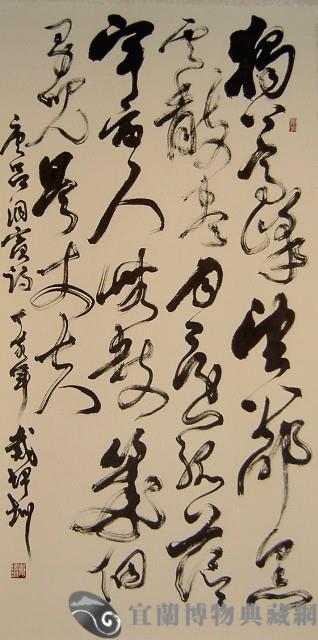 獨上高峰望八都黑
雲散盡月還孤茫茫
宇宙人無數幾個
男兒是丈夫
唐呂洞賓詩 丁亥年 戴
宜蘭博物典藏網